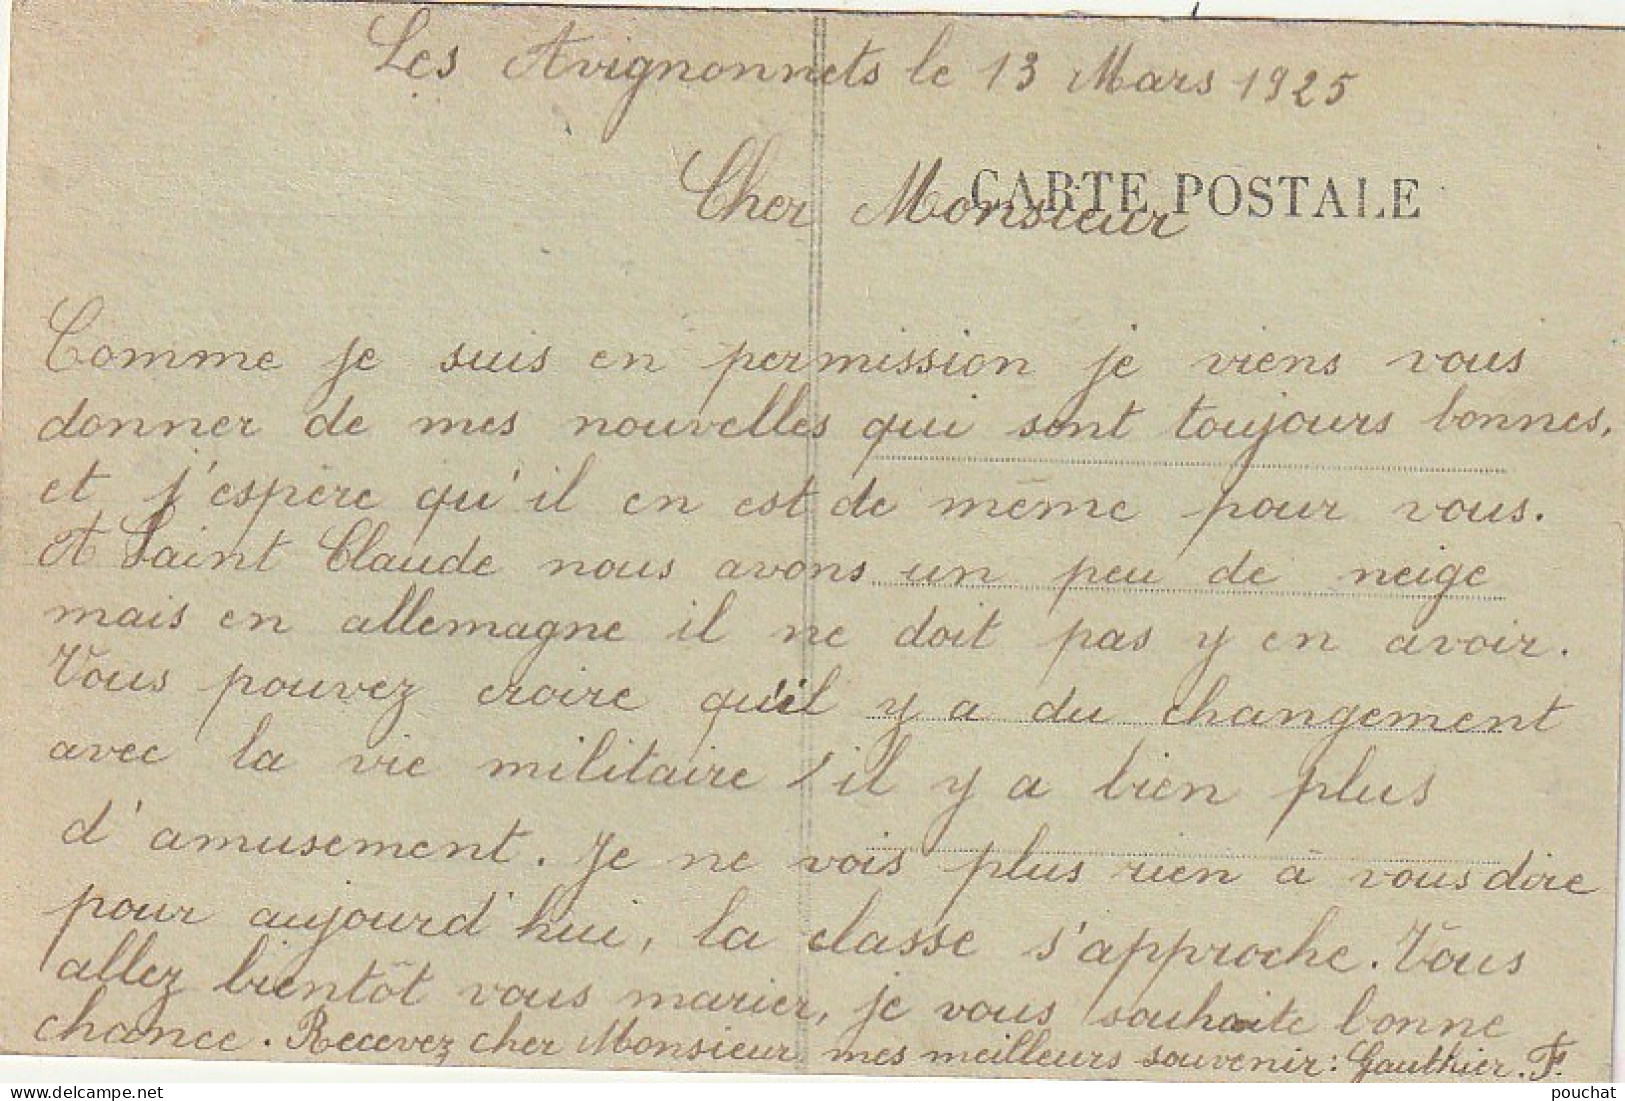 Les Avignonnets le 13 Mars 1925
CARTE POSTALE
Cher Monsieur
Comme je suis en permission je viens vous
donner de mes nouvelles qui sont toujours bonnes,
et j'espère qu'il en est de même pour vous.
A Saint Claude nous avons un peu de neige
mais en allemagne il ne doit pas y en avoir.
Vous pouvez croire qu'il y a du changement
avec la vie militaire, il y a bien plus
d'amusement. Je ne vois plus rien à vous dire
pour aujourd'hui, la classe s'approche. Vous
allez bientôt vous marier, je vous souhaite bonne
chance. Recevez cher Monsieur mes meilleurs souvenir: Gauthier. F.
delcampe.net
pouchat